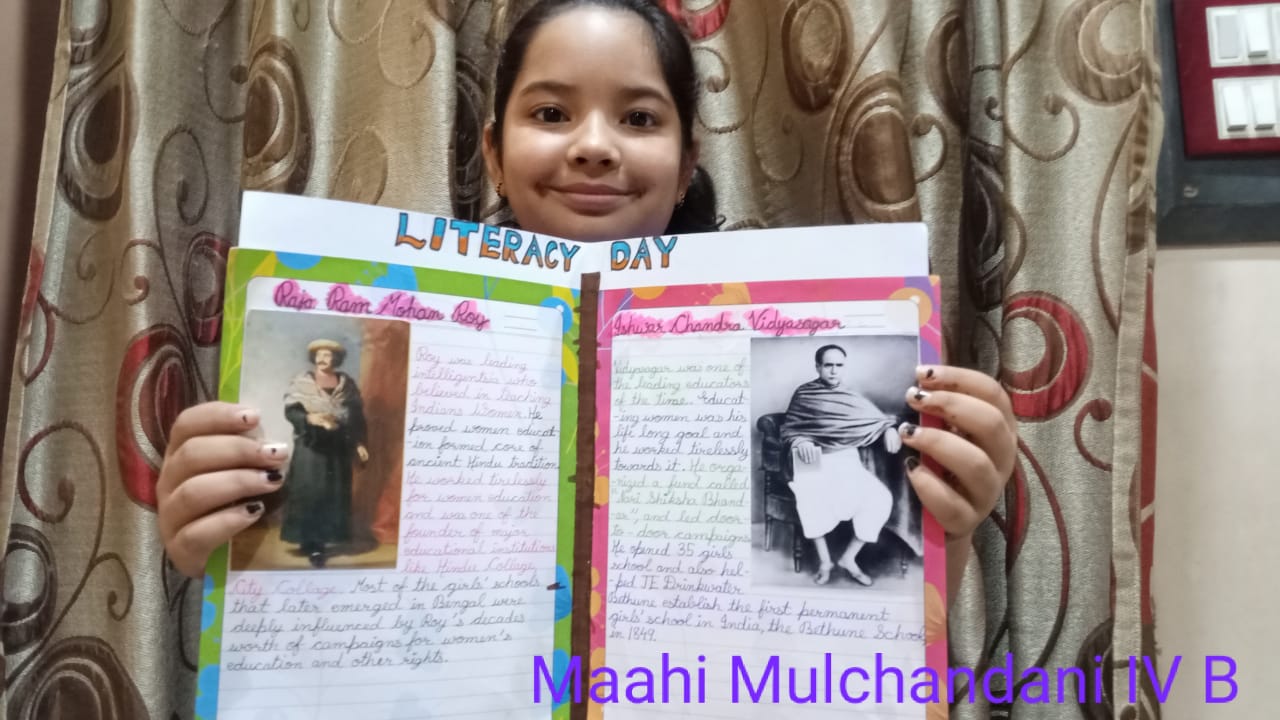 LITERACY DAY
Raja Ram Mohan Roy
Roy was leading
intelligentsia who
believed in teaching
Indians Women. He
proved women educat
-ion formed core of
ancient Hindu tradition
He worked tirelessly
for women education
and was one of the
founder of major
educational institutions
like Hindu College,
City Collage. Most of the girls' schools
that later emerged in Bengal were
deeply influenced by Roy's decades
worth of campaigns for women's
education and other rights.
Ishwar Chandra Vidyasagar
Vidyasagar was one of
the leading educators
of the time. Educat-
-ing women was his
life long goal and
he worked tirelessly
towards it. He orga-
-nized a fund called
"Nari Shiksha Bhand
-ar", and led door-
to-door campaigns
He opened 35 girls
school and also hel-
-ped JE Drinkwater
Bethune establish the first permanent
girls' school in India, the Bethune School
in 1849.
Maahi Mulchandani IV B